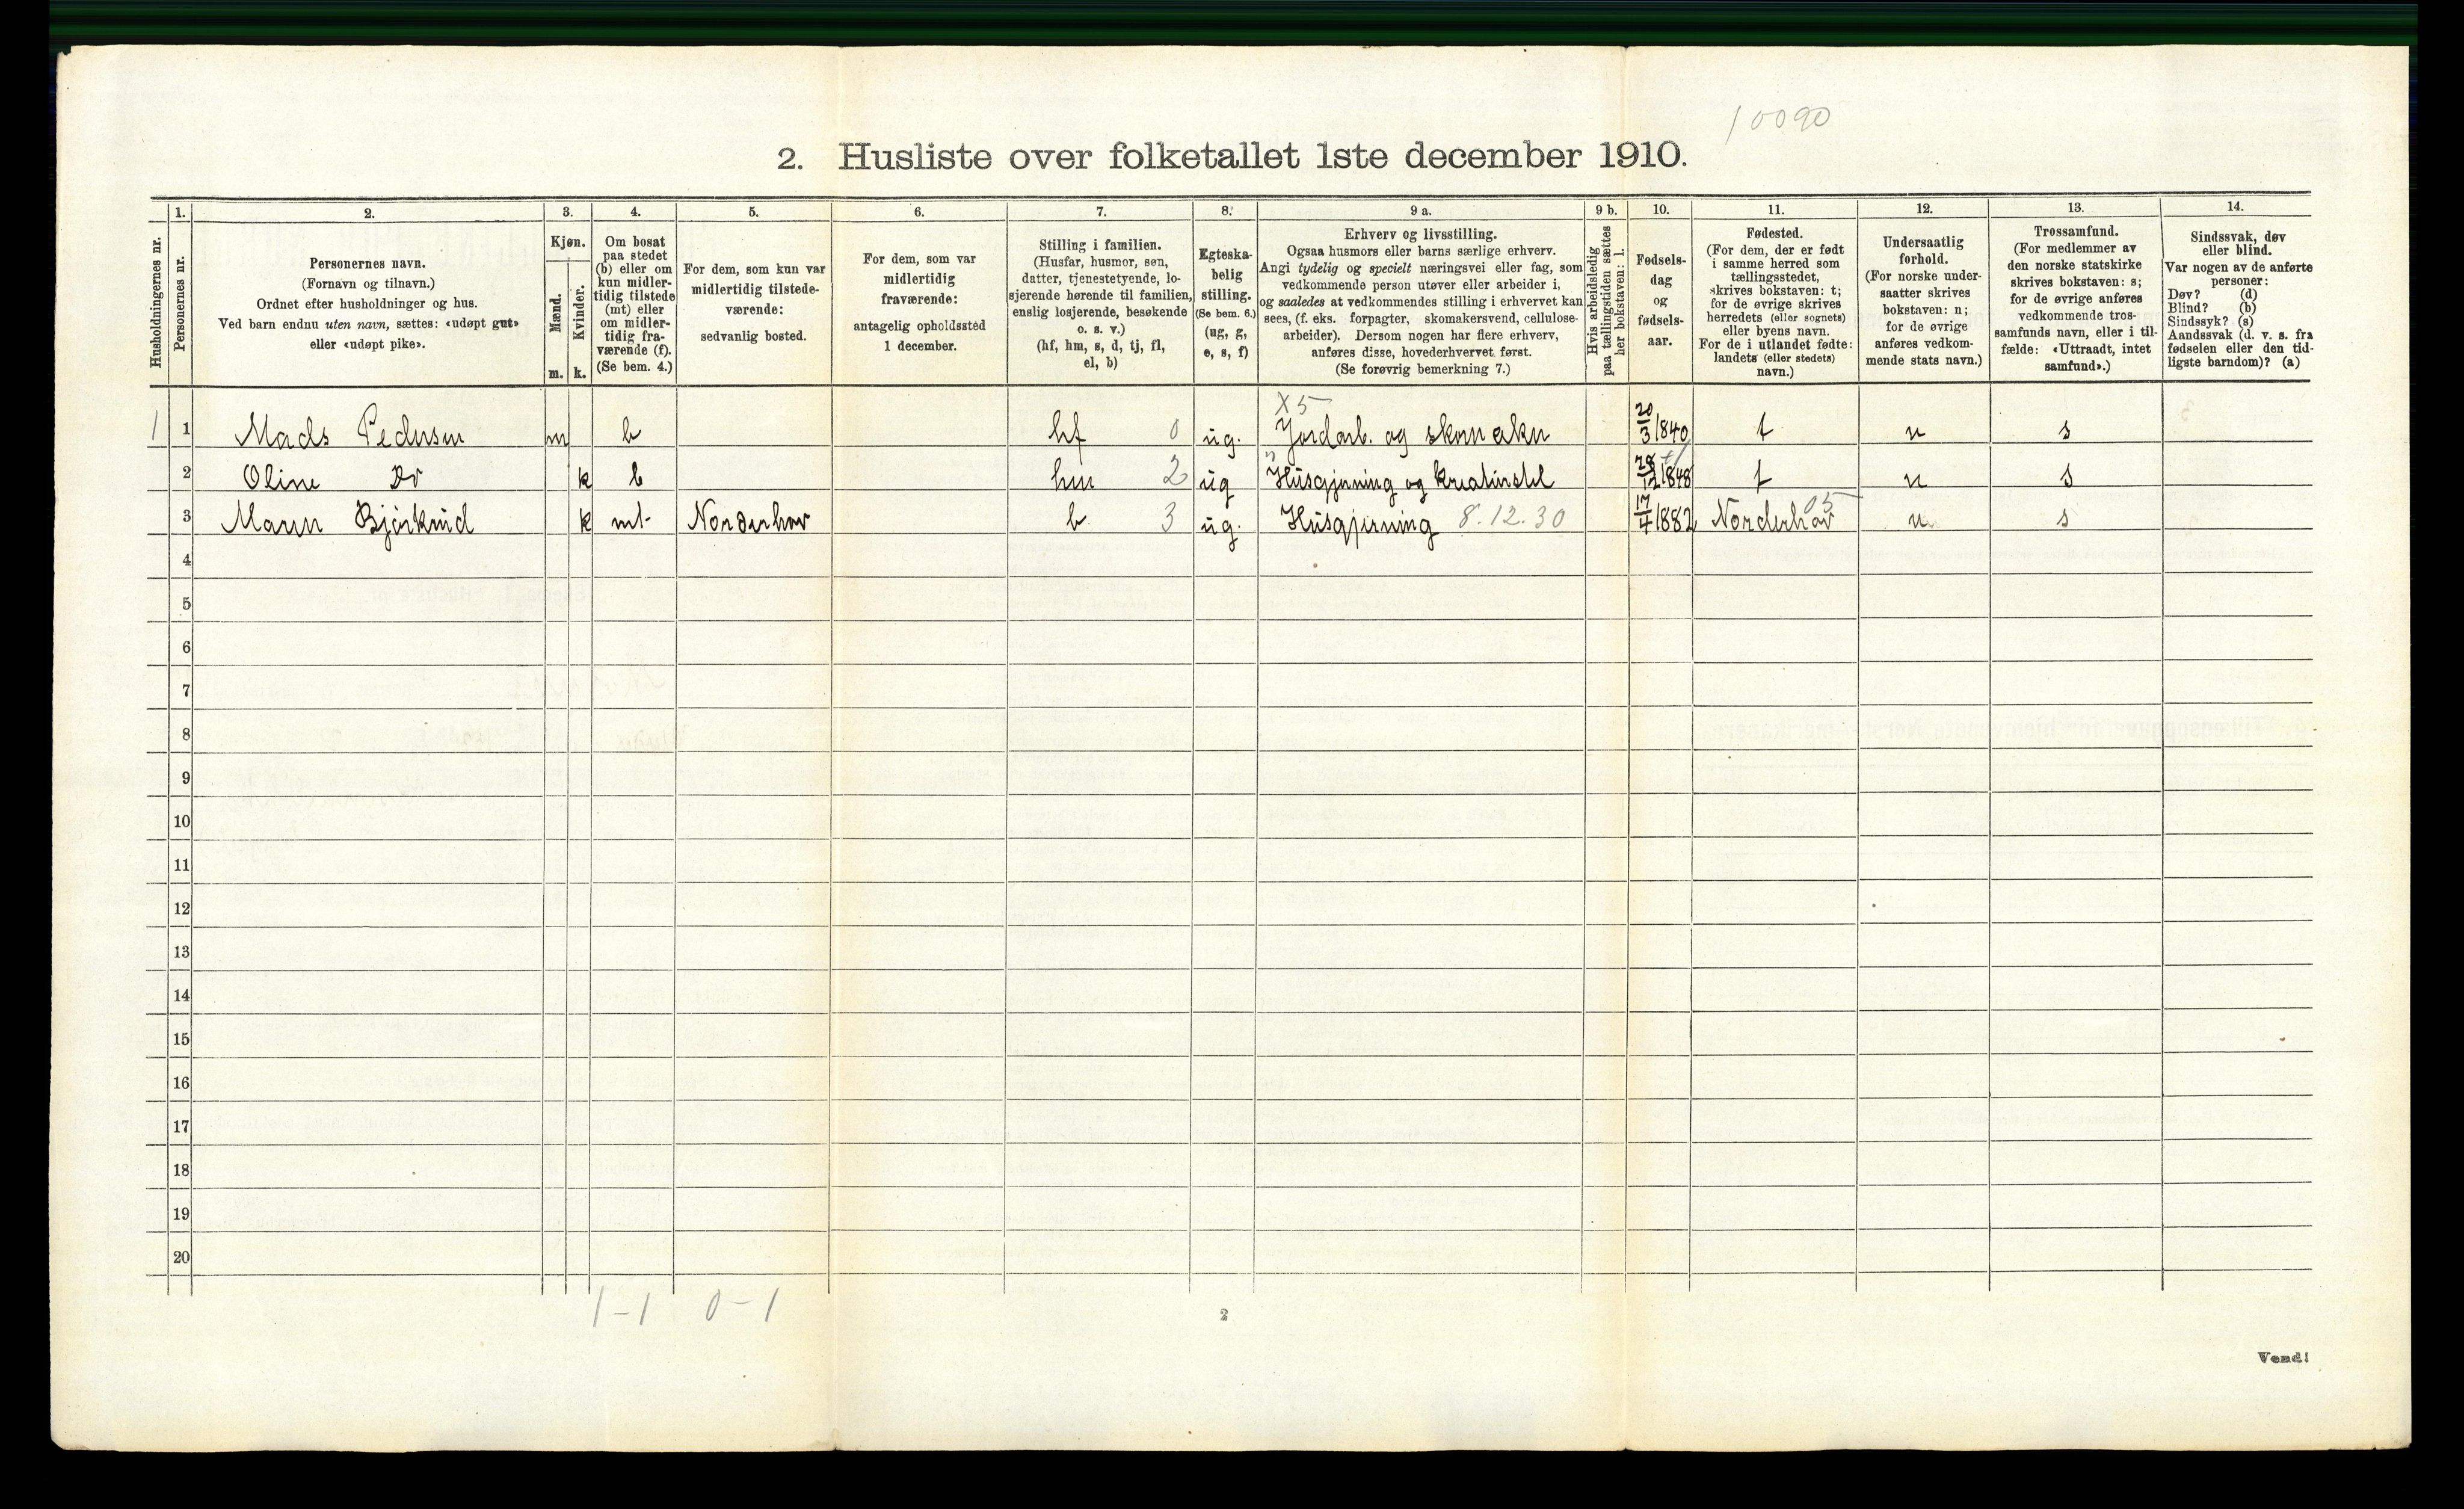 10090
2. Husliste over folketallet 1ste december 1910.
1. 2. 3. 4. 5. 6. 7. 8. 9 a. 9 b. 10. 11. 12. 13. 14.
Husholdningernes nr.
Personernes nr.
Personernes navn.
(Fornavn og tilnavn.)
Ordnet efter husholdninger og hus.
Ved barn endnu uten navn, sættes: «udøpt gut»
eller «udøpt pike».
Kjøn.
Mænd.
Kvinder.
m. k.
Om bosat
paa stedet
(b) eller om
kun midler-
tidig tilstede
(mt) eller
om midler-
tidig fra-
værende (f).
(Se bem. 4.)
For dem, som kun var
midlertidig tilstede-
værende:
sedvanlig bosted.
For dem, som var
midlertidig
fraværende:
antagelig opholdssted
1 december.
Stilling i familien.
(Husfar, husmor, søn,
datter, tjenestetyende, lo-
sjerende hørende til familien,
enslig losjerende, besøkende
o. s. v.)
(hf, hm, s, d, tj, fl,
el, b)
Egteska-
belig
stilling.
(Se bem. 6.)
(ug, g,
e, s, f)
Erhverv og livsstilling.
Ogsaa husmors eller barns særlige erhverv.
Angi tydelig og specielt næringsvei eller fag, som
vedkommende person utøver eller arbeider i,
og saaledes at vedkommendes stilling i erhvervet kan
sees, (f. eks. forpagter, skomakersvend, cellulose-
arbeider). Dersom nogen har flere erhverv,
anføres disse, hovederhvervet først.
(Se forøvrig bemerkning 7.)
Hvis arbeidsledig
paa tællingstiden sættes
her bokstaven: l.
Fødsels-
dag
og
fødsels-
aar.
Fødested.
(For dem, der er født
i samme herred som
tællingsstedet,
skrives bokstaven: t;
for de øvrige skrives
herredets (eller sognets)
eller byens navn.
For de i utlandet fødte:
landets (eller stedets)
navn.)
Undersaatlig
forhold.
(For norske under-
saatter skrives
bokstaven: n;
for de øvrige
anføres vedkom-
mende stats navn.)
Trossamfund.
(For medlemmer av
den norske statskirke
skrives bokstaven: s;
for de øvrige anføres
vedkommende tros-
samfunds navn, eller i til-
fælde: «Uttraadt, intet
samfund».)
Sindssvak, døv
eller blind.
Var nogen av de anførte
personer:
Døv? (d)
Blind? (b)
Sindssyk? (s)
Aandssvak (d. v. s. fra
fødselen eller den tid-
ligste barndom)? (a)
X5
1 1 Mads Pedersen m b hf 0 ug. Jordarb. og skomaker 20/3 1840 t n s
2 Oline Do k b hm 2 ug Husgjerning og kreaturstel 28/12 1848 t n s
05
3 Maren Bjørkerud k mt. Norderhov b 3 ug. Husgjerning 8.12.30 17/4 1882 Norderhov n s
4
5
6
7
8
9
10
11
12
13
14
15
16
17
18
19
20
1-1 0-1
2
Vend!